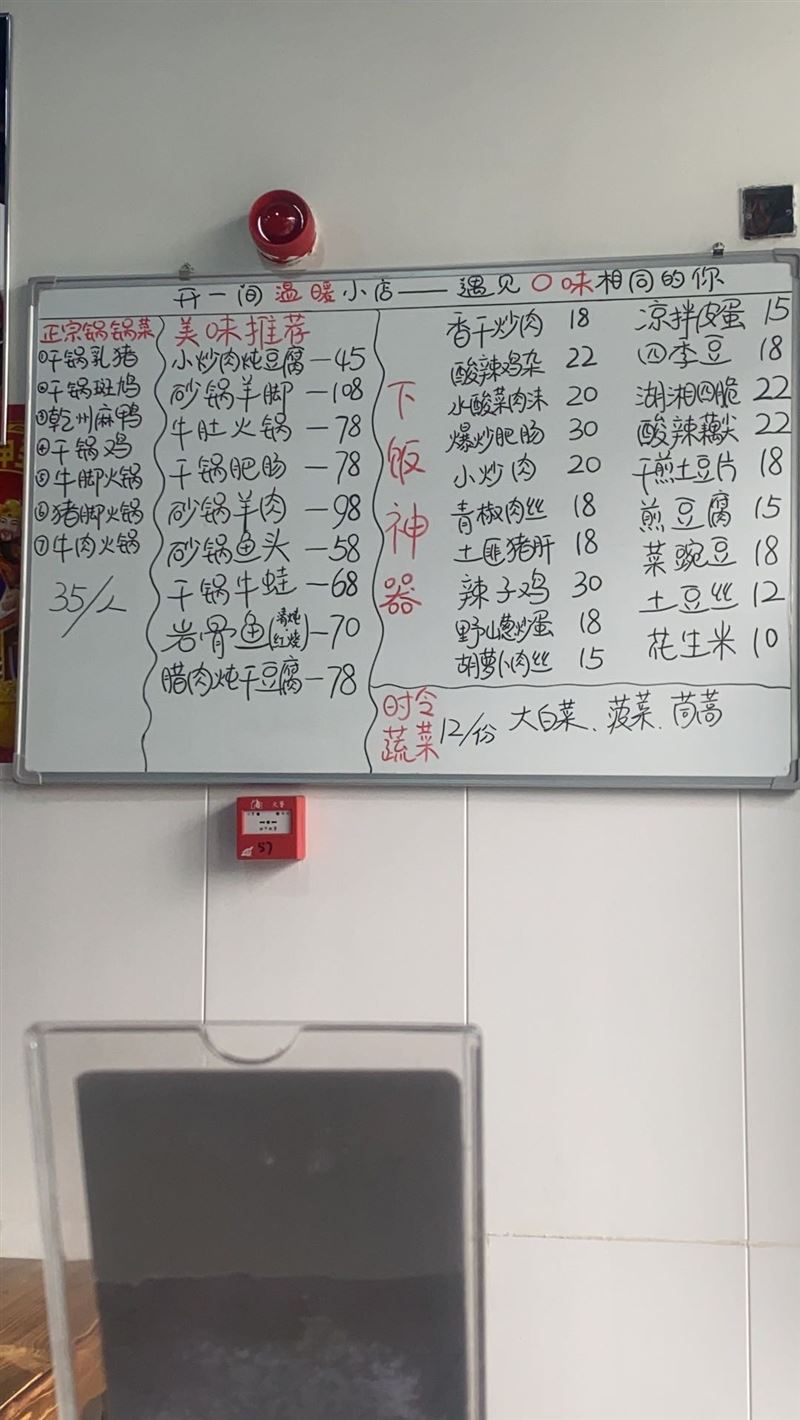 开一间温暖小店——遇见口味相同的你
正宗锅锅菜
①干锅乳猪
②干锅斑鸠
③乾州麻鸭
④干锅鸡
⑤牛脚火锅
⑥猪脚火锅
⑦牛肉火锅
35/人
美味推荐
小炒肉炖豆腐—45
砂锅羊脚—108
牛肚火锅—78
干锅肥肠—78
砂锅羊肉—98
砂锅鱼头—58
干锅牛蛙—68
岩骨鱼(清炖红烧)—70
腊肉炖干豆腐—78
下饭神器
香干炒肉 18
酸辣鸡杂 22
水酸菜肉沫 20
爆炒肥肠 30
小炒肉 20
青椒肉丝 18
土匪猪肝 18
辣子鸡 30
野山葱炒蛋 18
胡萝卜肉丝 15
凉拌皮蛋 15
四季豆 18
湖湘四脆 22
酸辣藕尖 22
干煎土豆片 18
煎豆腐 15
菜豌豆 18
土豆丝 12
花生米 10
时令
蔬菜
12/份 大白菜、菠菜、茼蒿
57